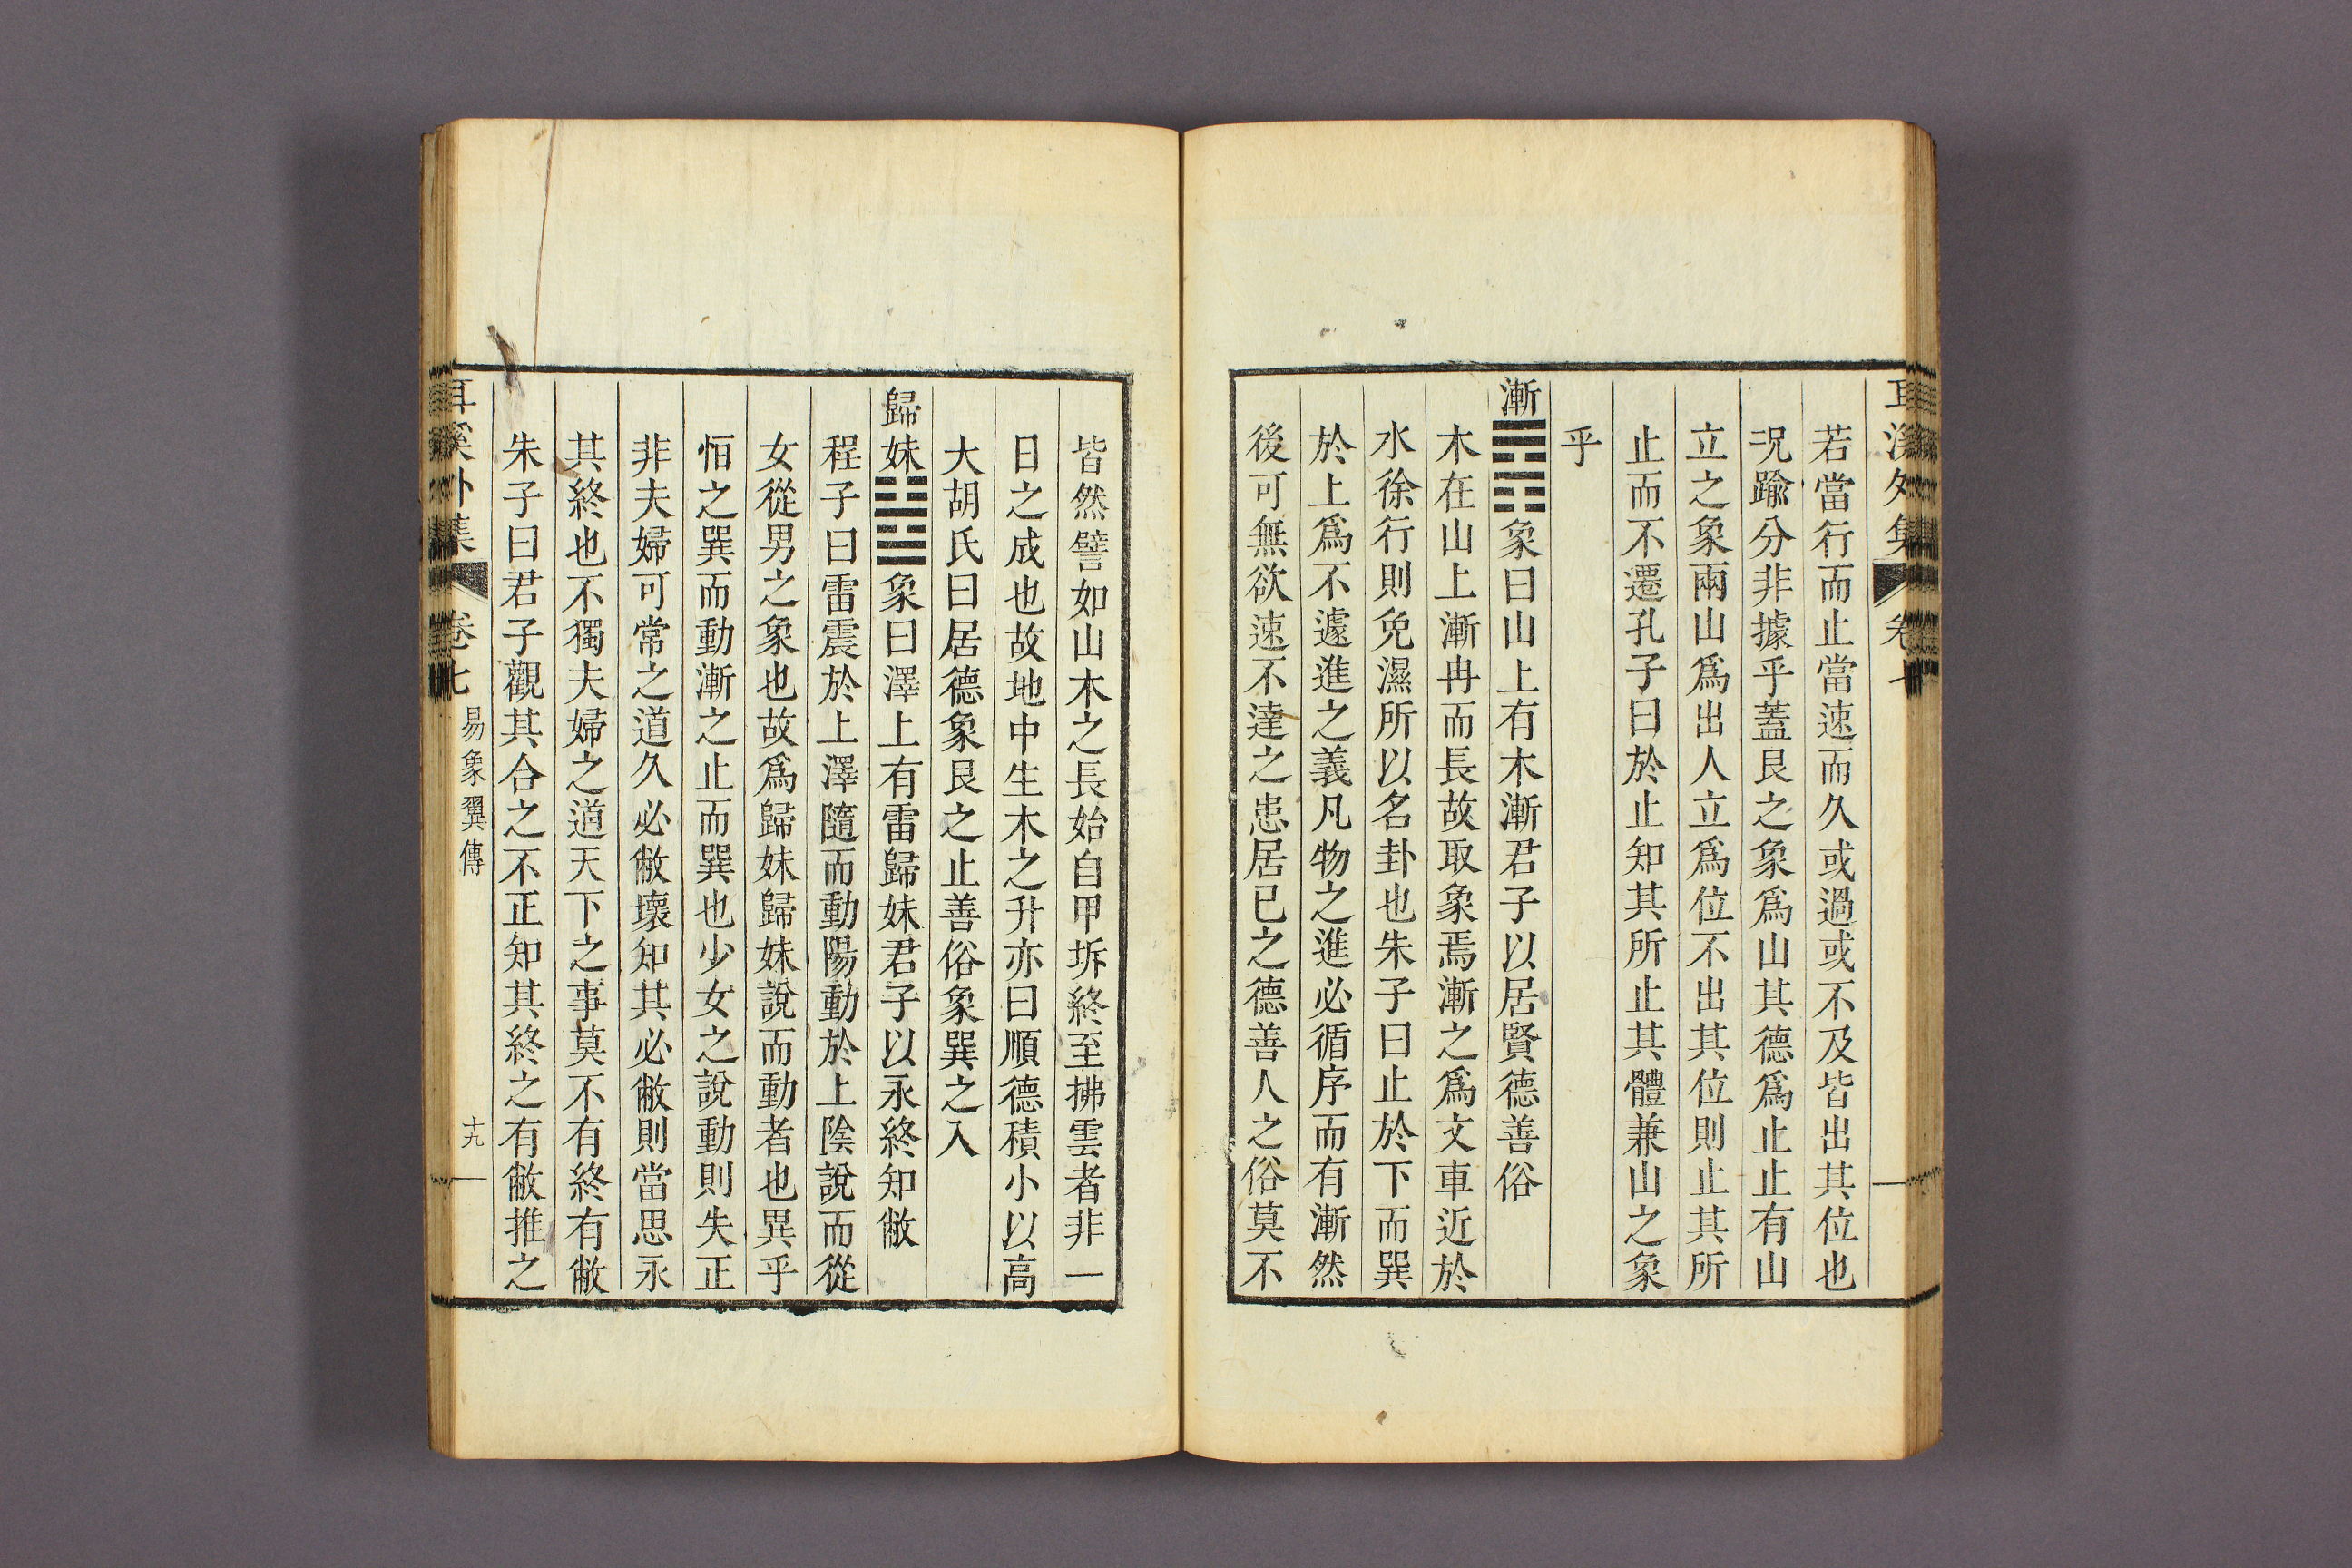 耳溪外集 卷七
若當行而止當速而久或過或不及皆出其位也
况踰分非據乎蓋艮之象爲山其德爲止止有山
立之象兩山爲出人立爲位不出其位則止其所
止而不遷孔子曰於止知其所止其體兼山之象
乎
漸䷴象曰山上有木漸君子以居賢德善俗
木在山上漸冉而長故取象焉漸之爲文車近於
水徐行則免濕所以名卦也朱子曰止於下而巽
於上爲不遽進之義凡物之進必循序而有漸然
後可無欲速不達之患居已之德善人之俗莫不
皆然譬如山木之長始自甲坼終至拂雲者非一
日之成也故地中生木之升亦曰順德積小以高
大胡氏曰居德象艮之止善俗象巽之入
歸妹䷵象曰澤上有雷歸妹君子以永終知敝
程子曰雷震於上澤隨而動陽動於上陰說而從
女從男之象也故爲歸妹歸妹說而動者也異乎
恒之巽而動漸之止而巽也少女之說動則失正
非夫婦可常之道久必敝壞知其必敝則當思永
其終也不獨夫婦之道天下之事莫不有終有敝
朱子曰君子觀其合之不正知其終之有敝推之
耳溪外集 卷七 易象翼傳 十九